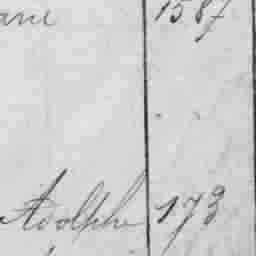 1587
Adolphe 173